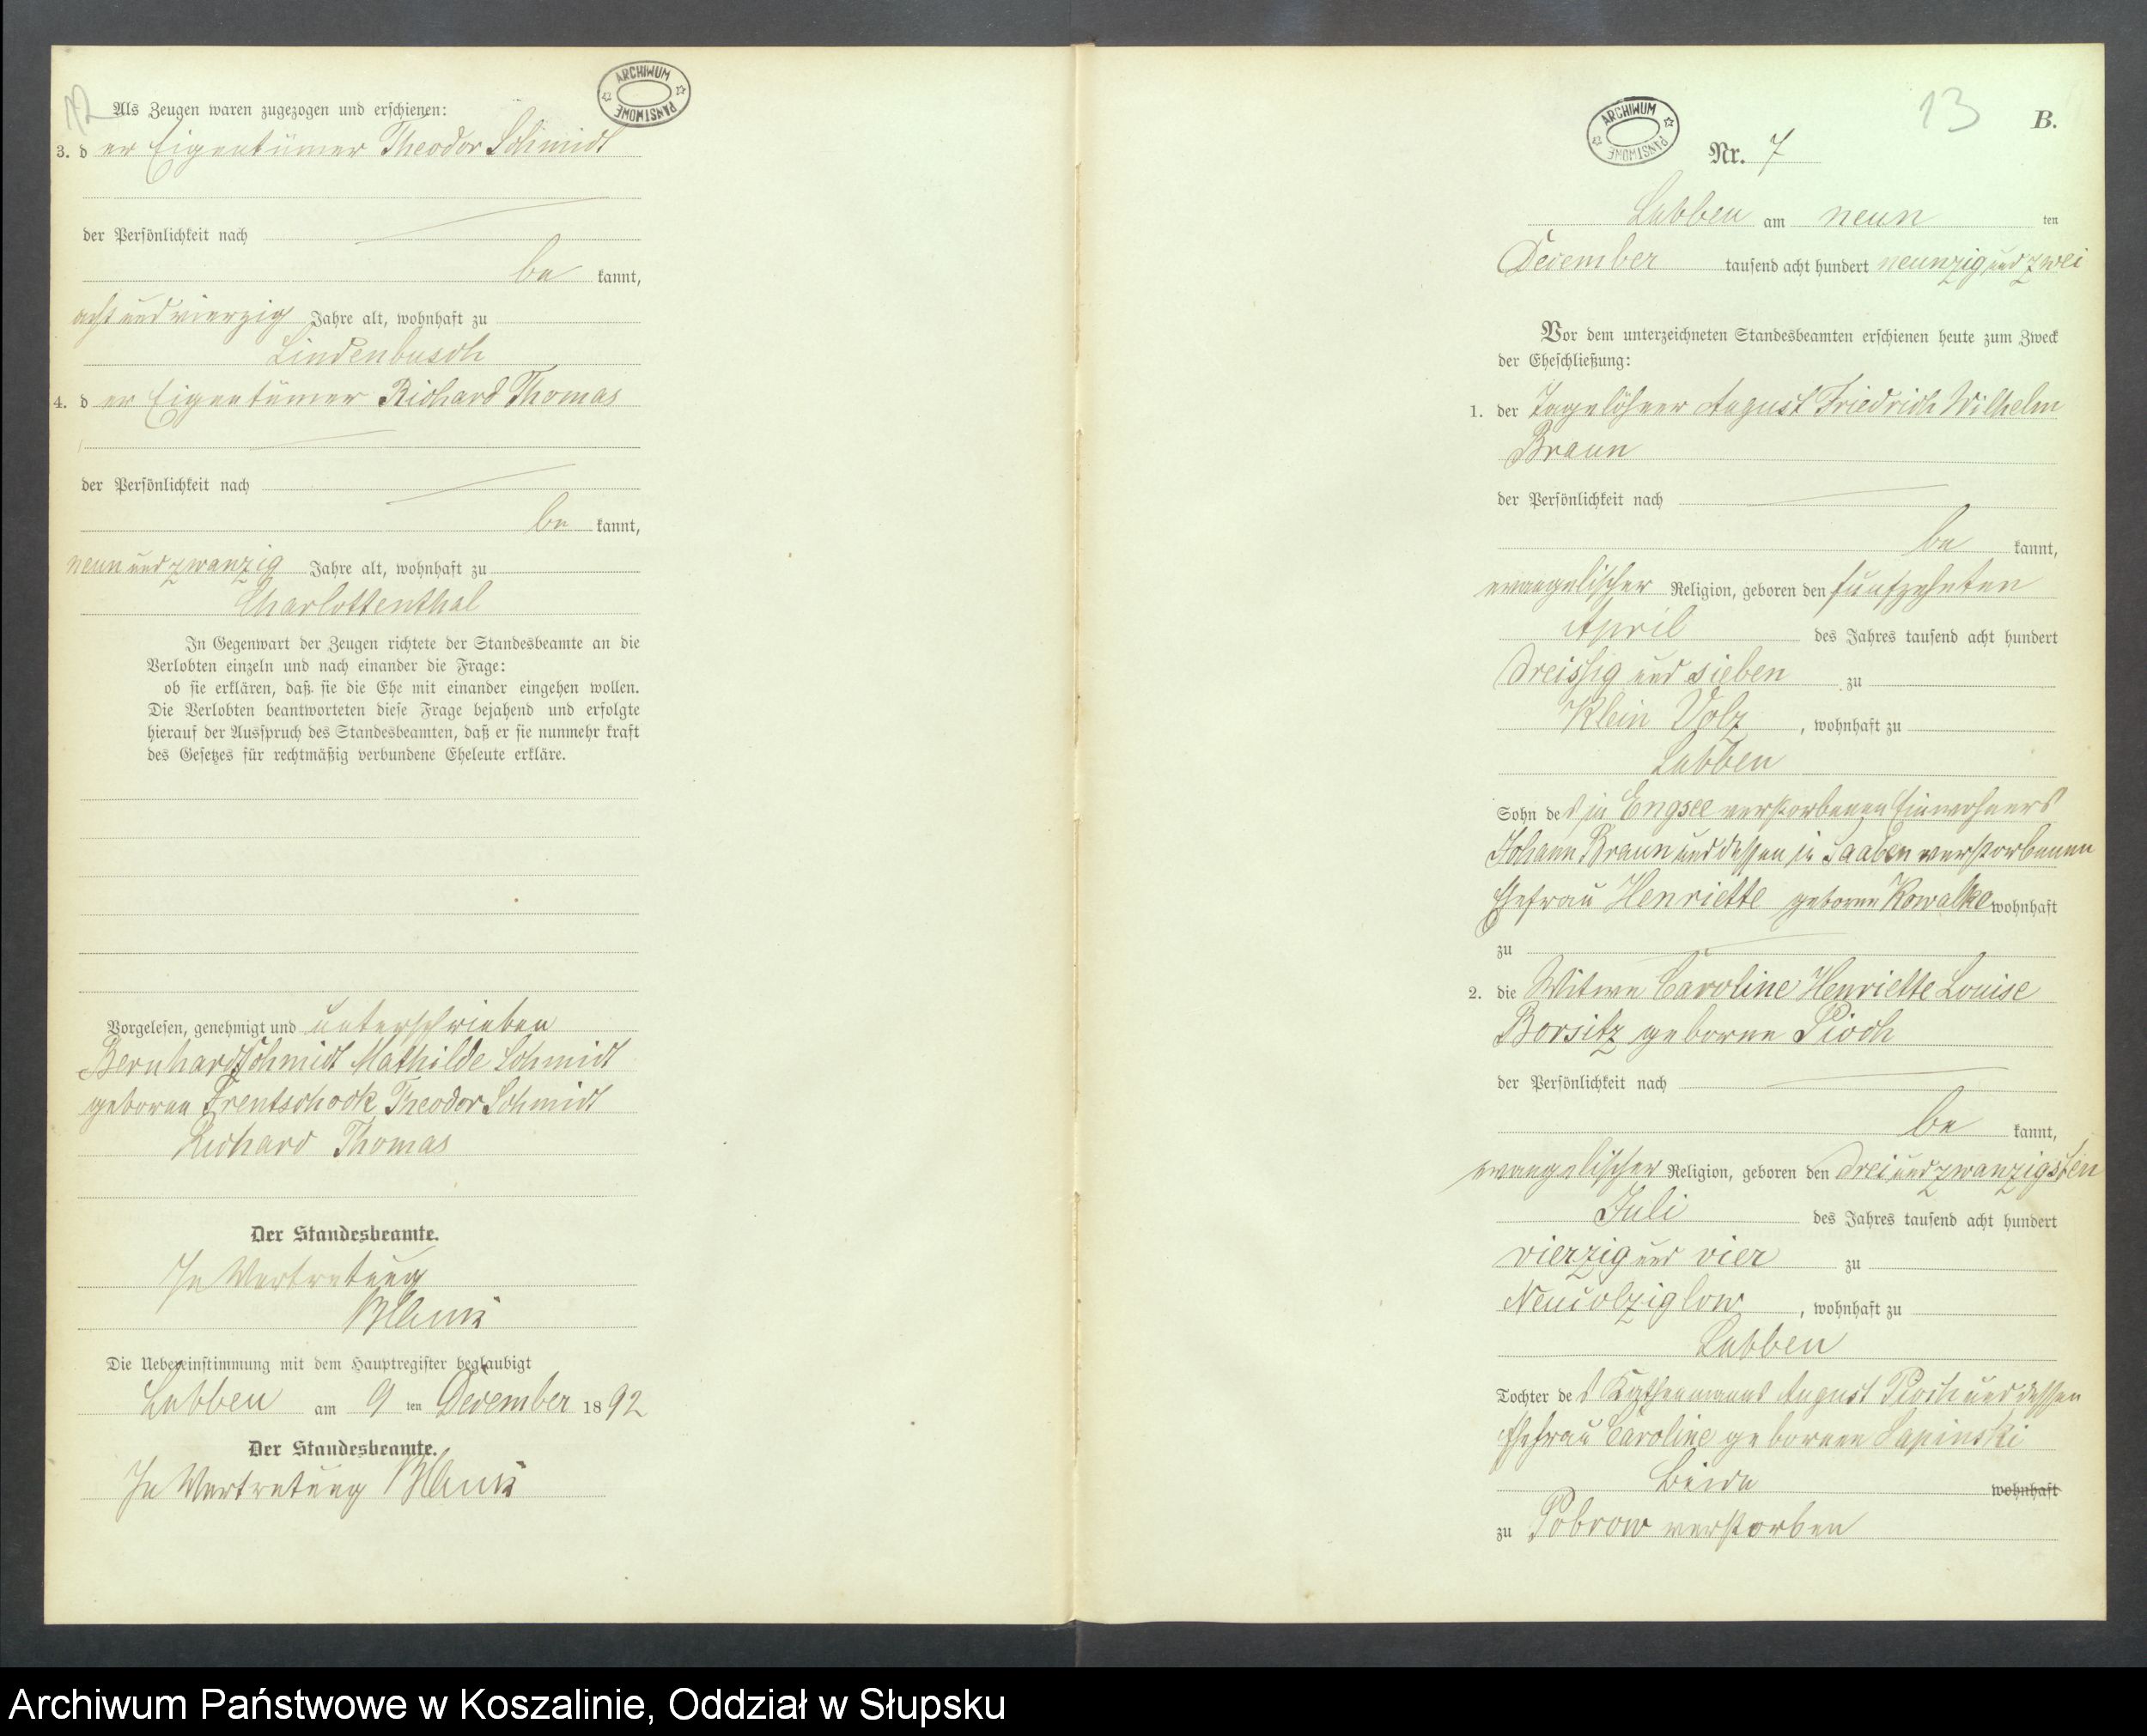 12
ARCHIWUM PAŃSTWOWE
Als Zeugen waren zugezogen und erschienen:
3. der Eigentümer Theodor Schmidt
der Persönlichkeit nach
be kannt,
acht und vierzig Jahre alt, wohnhaft zu
Lindenbusch
4. der Eigentümer Richard Thomas
der Persönlichkeit nach
be kannt,
neun und zwanzig Jahre alt, wohnhaft zu
Charlottenthal
In Gegenwart der Zeugen richtete der Standesbeamte an die
Verlobten einzeln und nach einander die Frage:
ob sie erklären, daß sie die Ehe mit einander eingehen wollen.
Die Verlobten beantworteten diese Frage bejahend und erfolgte
hierauf der Ausspruch des Standesbeamten, daß er sie nunmehr kraft
des Gesetzes für rechtmäßig verbundene Eheleute erkläre.
Vorgelesen, genehmigt und unterschrieben
Bernhard Schmidt Mathilde Schmidt
geborne Trentschock Theodor Schmidt
Richard Thomas
Der Standesbeamte.
In Vertretung
Die Uebereinstimmung mit dem Hauptregister beglaubigt
Lubben am 9 ten December 1892
Der Standesbeamte.
In Vertretung
ARCHIWUM PAŃSTWOWE
13
B.
Nr. 7
Lubben am neun ten
December tausend acht hundert neunzig und zwei
Vor dem unterzeichneten Standesbeamten erschienen heute zum Zweck
der Eheschließung:
1. der Tagelöhner August Friedrich Wilhelm
Braun
der Persönlichkeit nach
be kannt,
evangelischer Religion, geboren den fünfzehnten
April des Jahres tausend acht hundert
dreissig und sieben zu
Klein Volz, wohnhaft zu
Lubben
Sohn des in Engsee verstorbenen Einwohners
Johann Braun und dessen in Saaben verstorbenen
Ehefrau Henriette geborne Kowalke wohnhaft
zu
2. die Witwe Caroline Henriette Louise
Borsitz geborne Pioch
der Persönlichkeit nach
be kannt,
evangelischer Religion, geboren den drei und zwanzigsten
Juli des Jahres tausend acht hundert
vierzig und vier zu
Neucolziglow, wohnhaft zu
Lubben
Tochter des Kathenmanns August Pioch und dessen
Ehefrau Caroline geborene Lapinski
beide wohnhaft
zu Pobrow verstorben
Archiwum Państwowe w Koszalinie, Oddział w Słupsku